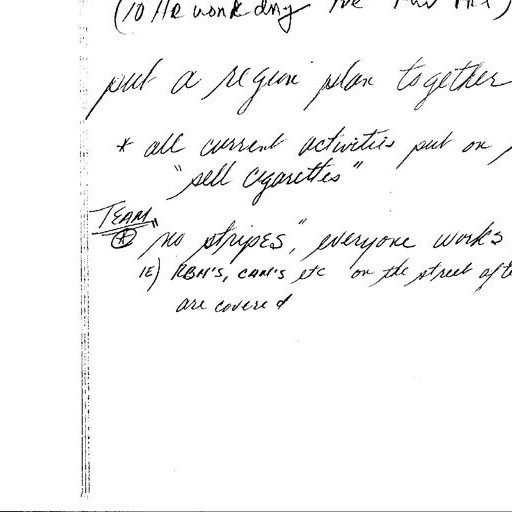 (10 Hr work day
put a region plan together
* all current activities put on
"sell cigarettes"
TEAM
* "no stripes", everyone works
IE) RBM's, CAM's etc on the street
are covered